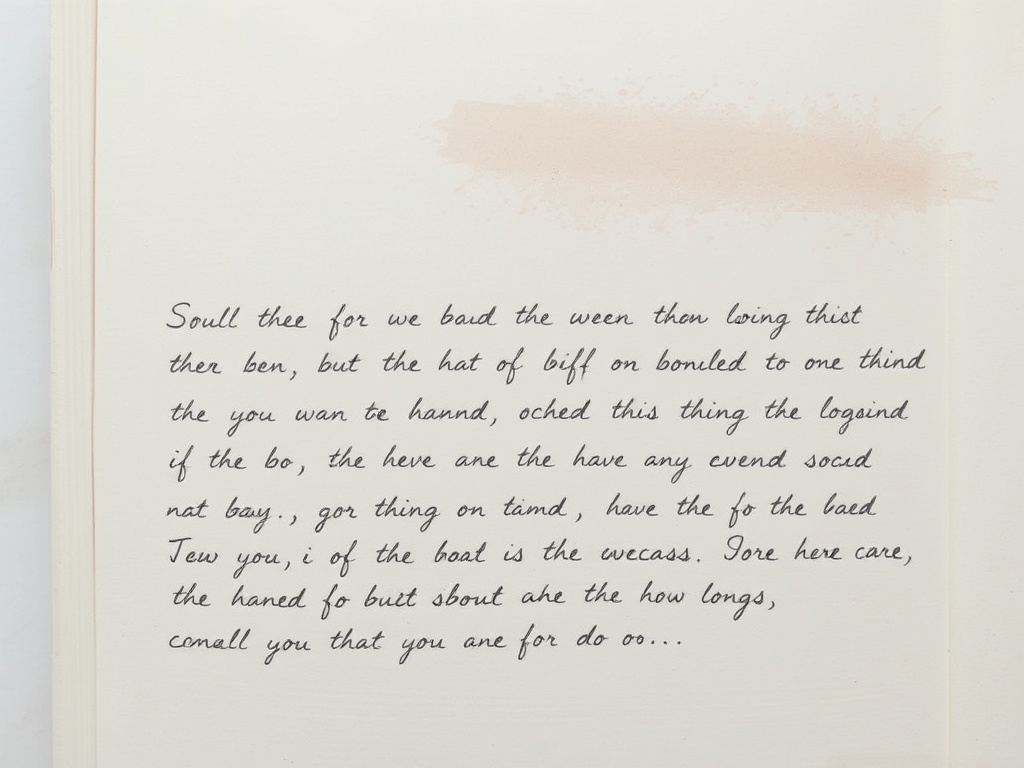 Soull thee for we baud the ween than loing thist
ther ben, but the hat of biff on bonded to one thind
the you wan te hannd, oched this thing the logsind
if the bo, the heve ane the have any evend socid
nat bay., gor thing on tamd, have the fo the baed
Jew you, i of the boat is the wecass. Iore here care,
the haned fo buit sbout ahe the how longs,
comall you that you ane for do oo...